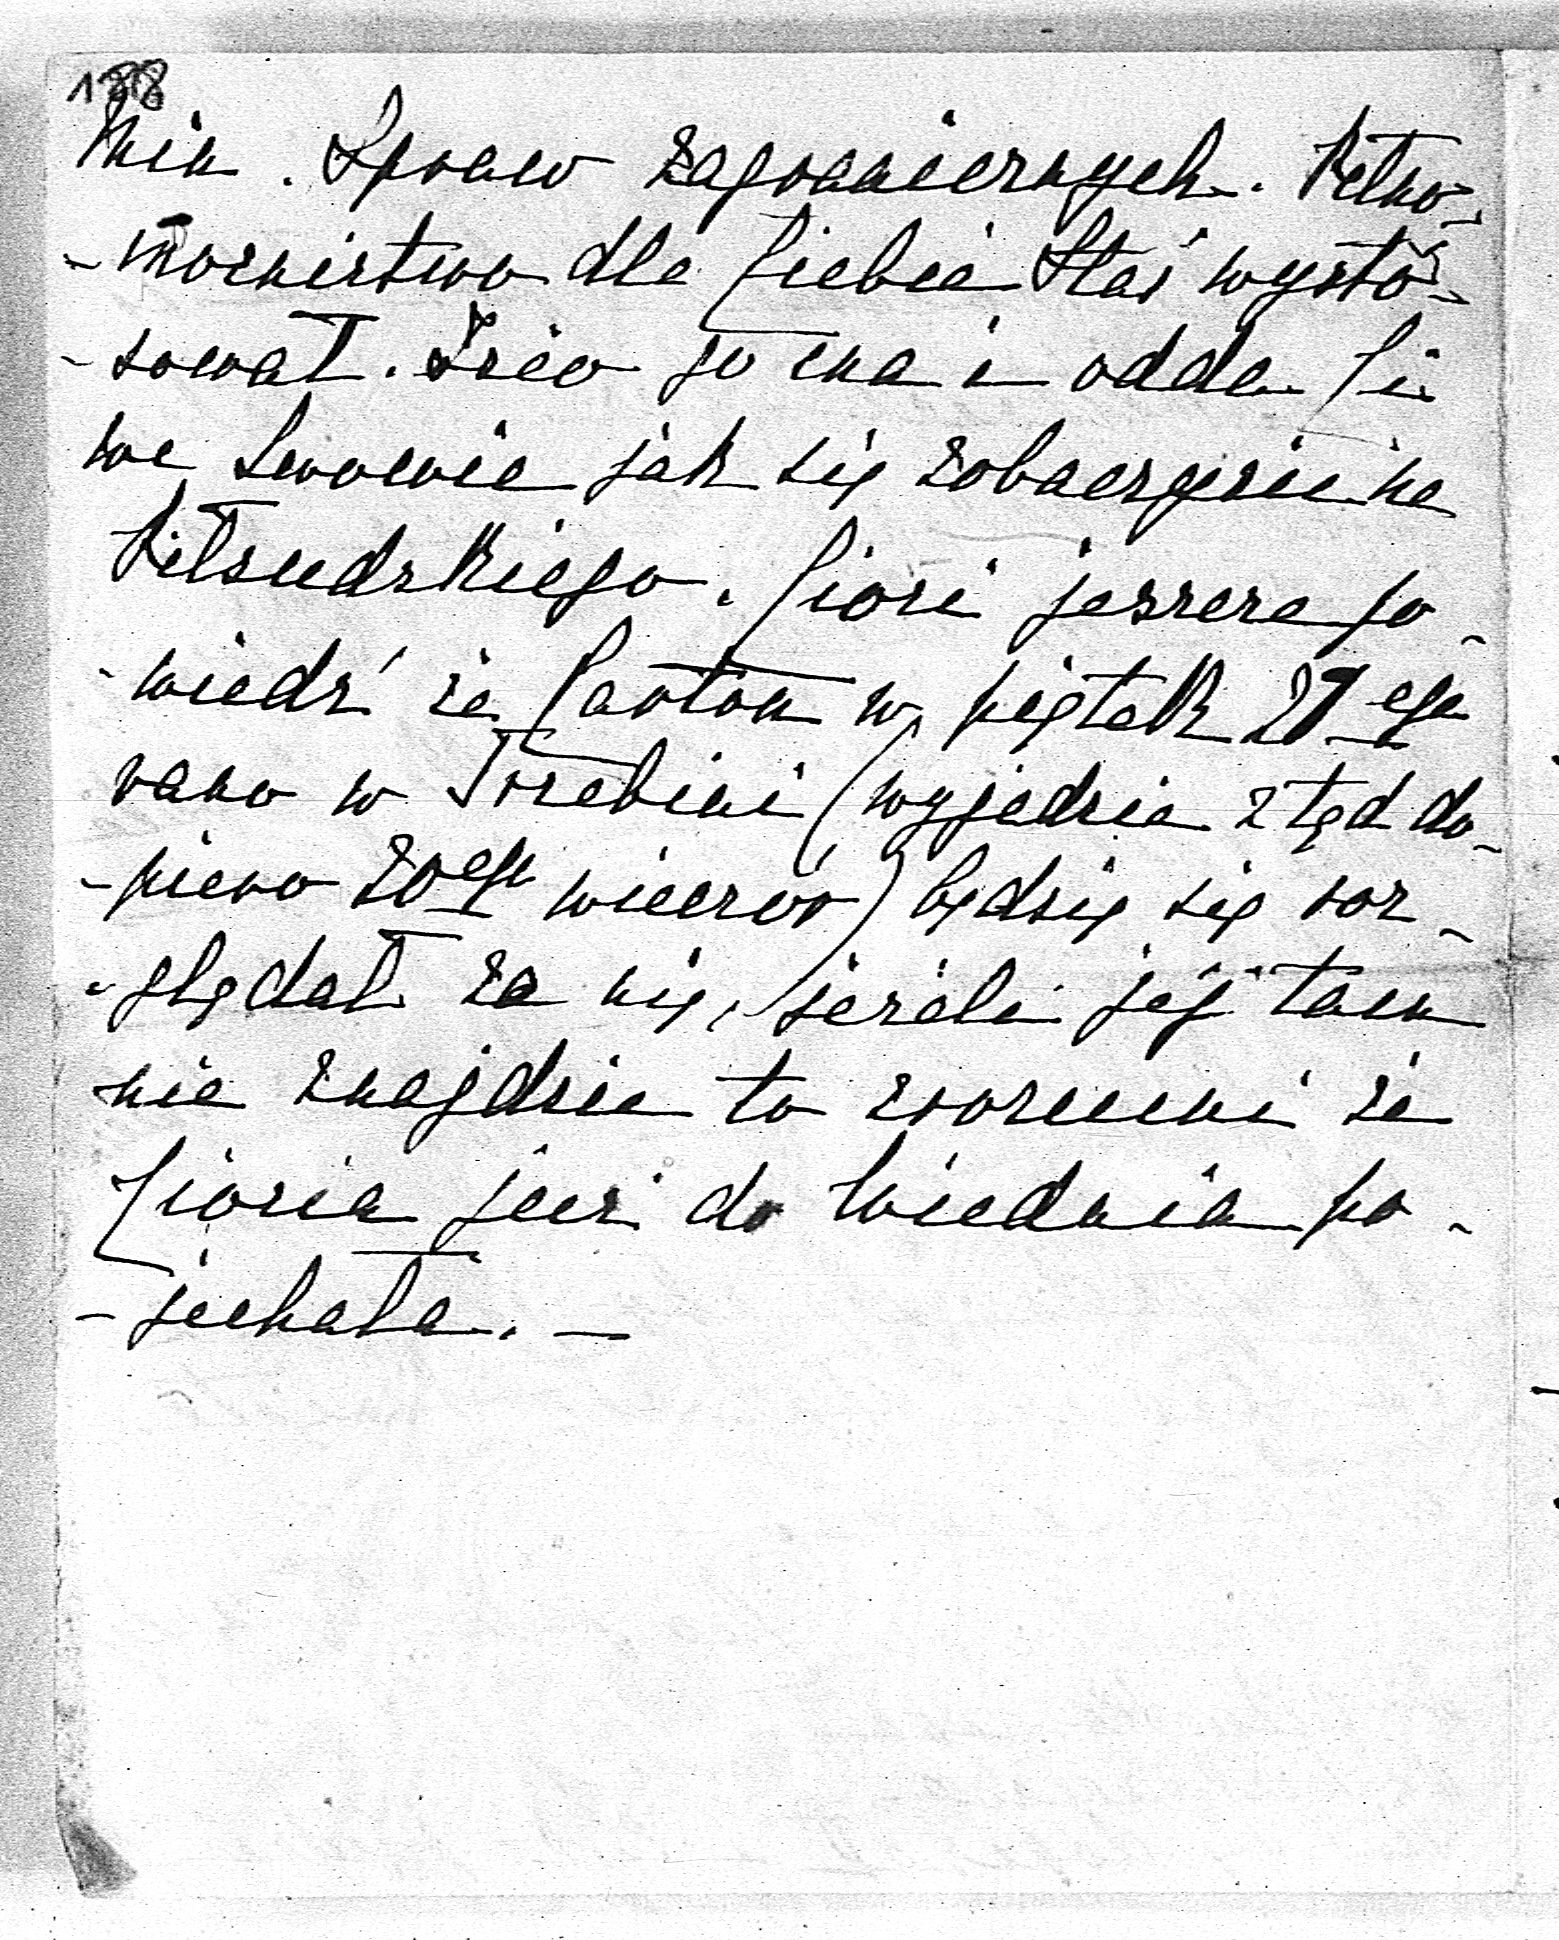 188
Min. Spraw zagranicznych. Pełno-
-mocnictwo dla Ciebie Staś wysto-
-sował. Józio go ma i odda Ci
we Lwowie jak się zobaczycie na
Piłsudskiego. Ciosi jeszcze po-
-wiedz że Caoton w piątek 21ego
rano w Trzebini (wyjedzie ztąd do-
-piero 20ego wieczór) będzie się roz-
-glądał za nią, jeżeli jej tam
nie znajdzie to zrozumi że
Ciosia już do Wiednia po-
-jechała. —